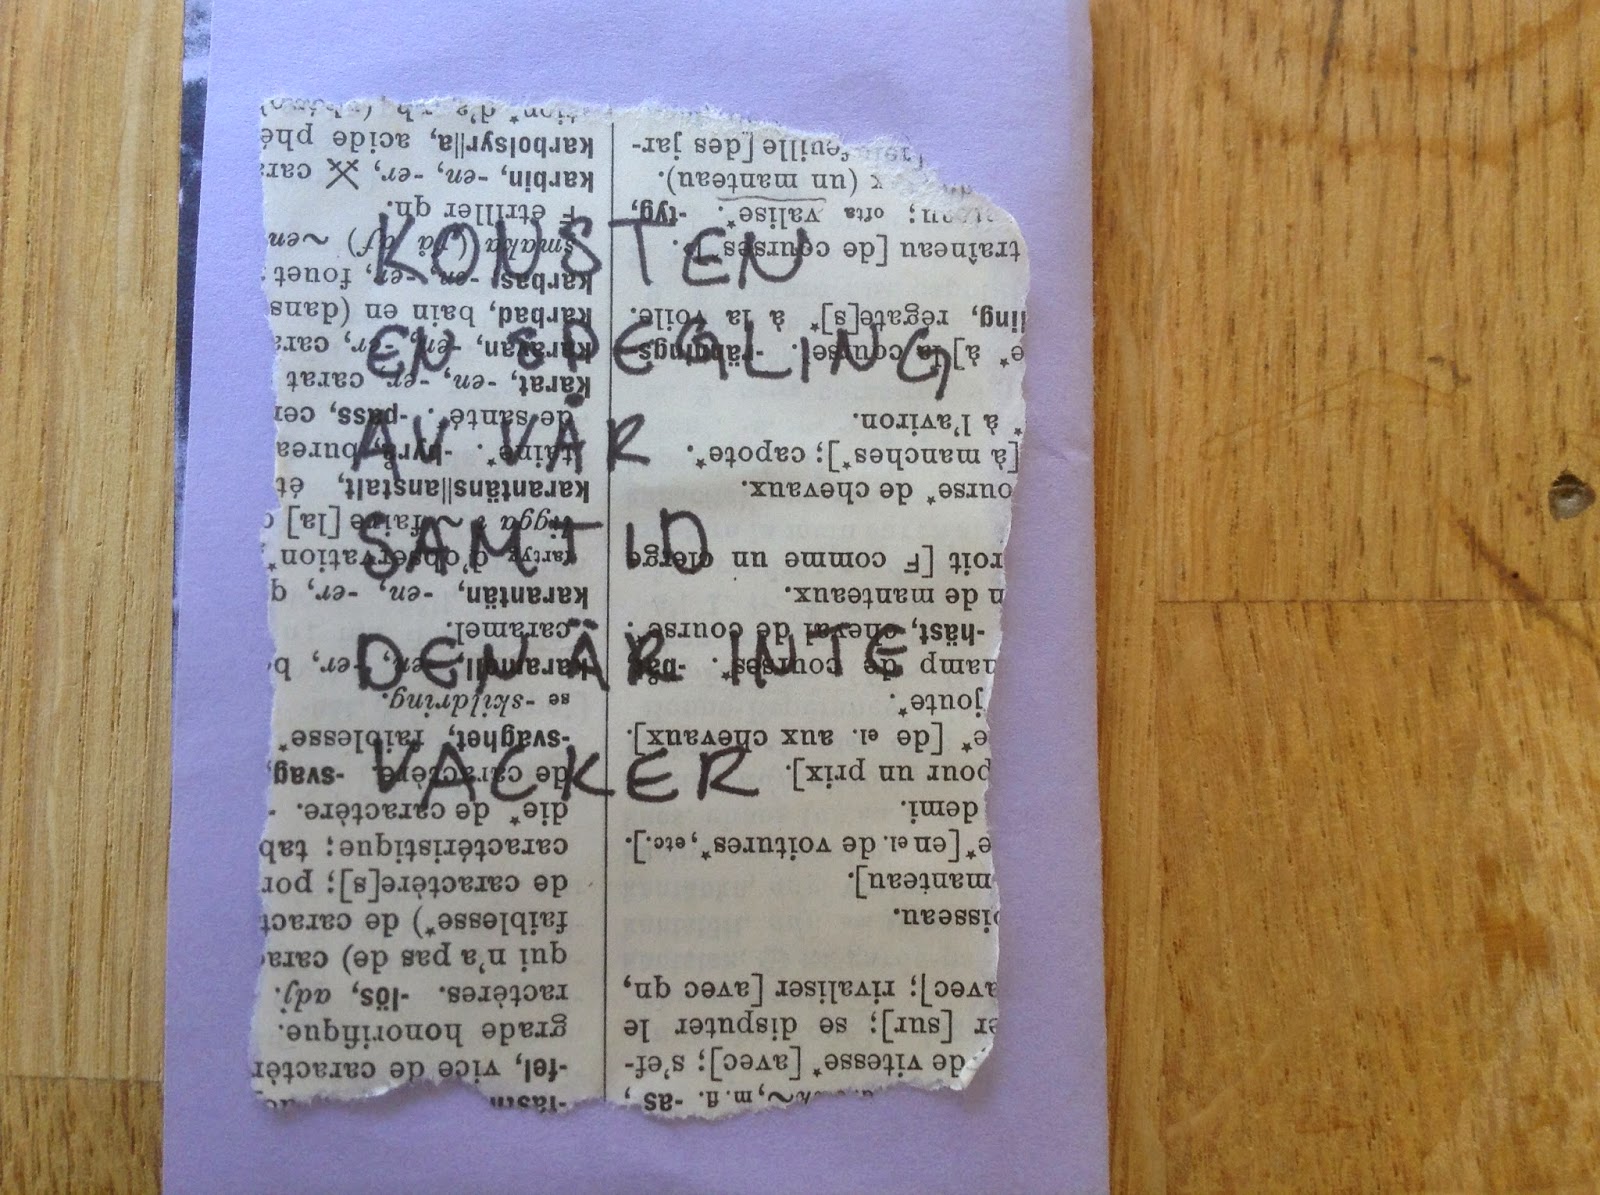 KONSTEN
EN SPEGLING
AV VÅR
SAMTID
DEN ÄR INTE
VACKER
de vitesse* [avec]; s'ef-
er [sur]; se disputer le
avec]; rivaliser [avec qn,
oisseau.
manteau].
e* [en el. de voitures*, etc.].
demi.
pour un prix].
e* [de el. aux chevaux].
joute*.
amp de courses*.
-häst, cheval de course*.
n de manteaux.
roit [F comme un cierge
ourse* de chevaux.
[à manches*]; capote*.
* à l'aviron.
e* à] la course*.
ling, régate[s]* à la voile.
traîneau [de courses*
; ofta valise*. -tyg,
(un manteau).
feuille [des jar-
-fel, vice de caractèr
grade honorifique.
ractères. -lös, adj.
qui n'a pas de) cara
faiblesse*) de caract
de caractère[s]; por
caractéristique; tab
die* de caractère. -
de caractère. -svag,
-svaghet, faiblesse*
se -skildring.
karamell, -en, -er, b
caramel.
karantän, -en, -er, q
d'observation*,
ligga i ~, faire [la] q
karantäns||anstalt, ét
taine*. -byrå, burea
de santé*. -pass, cer
karat, -en, -er, carat
karavan, -en, -er, cara
karbad, bain en (dans
karbas, -en, -er, fouet
smaka (få af) ~en
F étriller qn.
karbin, -en, -er, ⚔ cara
karbolsyr||a, acide phé